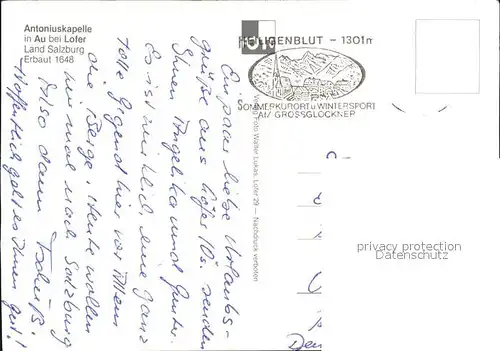 Antoniuskapelle
in Au bei Lofer
Land Salzburg
Erbaut 1648
HEILIGENBLUT - 1301m
SOMMERKURORT u. WINTERSPORT
AM GROSSGLOCKNER
Foto Walter Lukas, Lofer 29 — Nachdruck verboten
Ein paar liebe Urlaubs-
grüße aus Lofer senden
Ihnen Angelika und Günter.
Es ist wirklich eine ganz
tolle Gegend hier vor Allem
die Berge. Heute wollen
wir mal nach Salzburg
Also dann Tschüß!
Hoffentlich geht es Ihnen gut!
privacy protection
Datenschutz